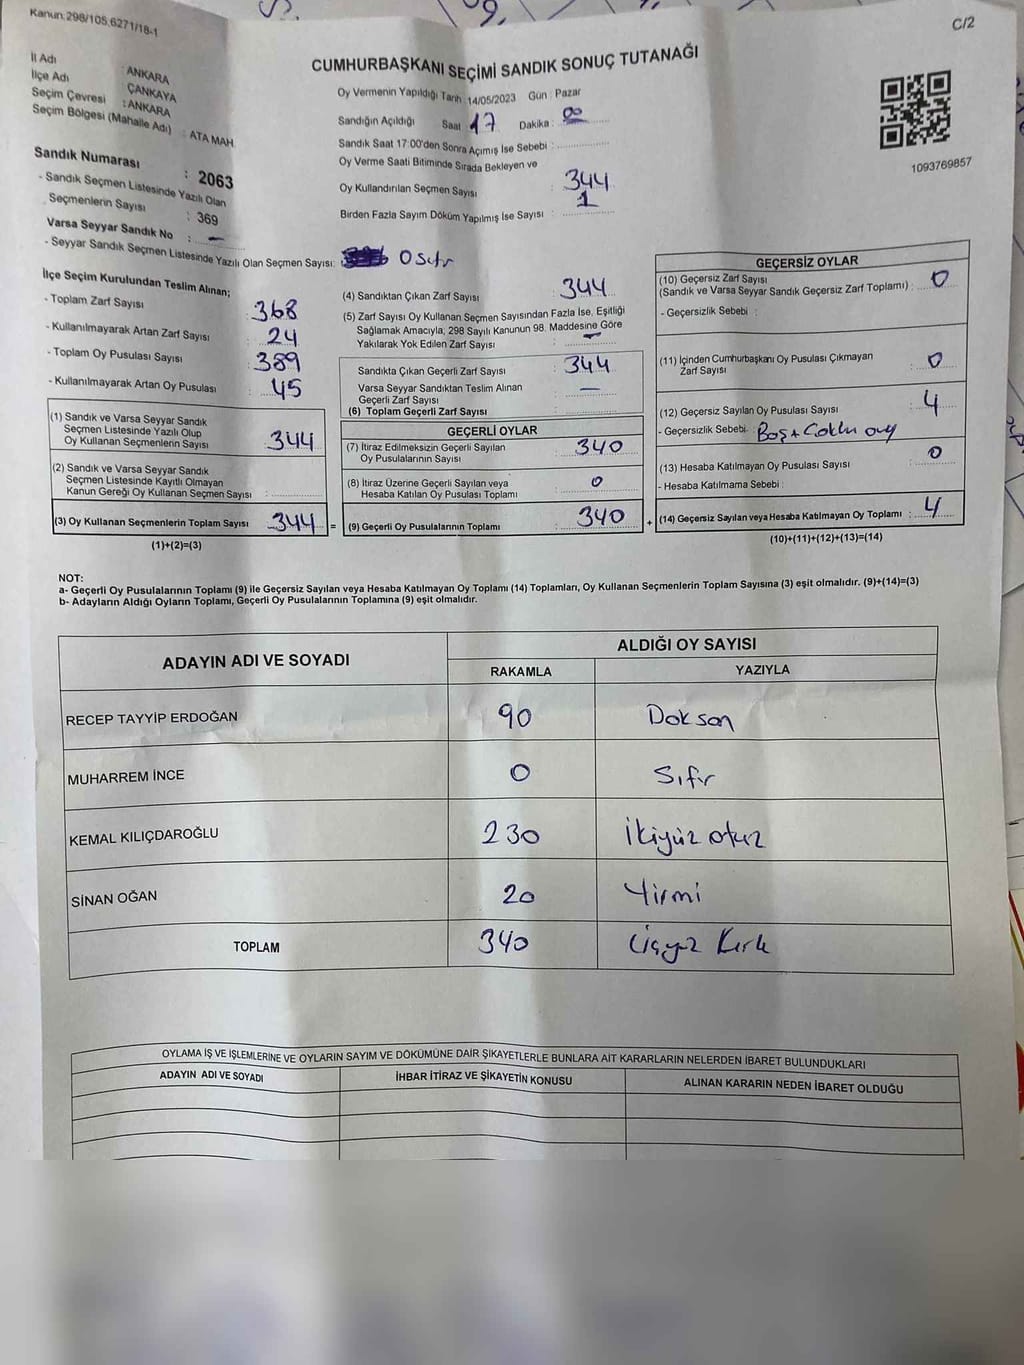 Kanun:298/105,6271/18-1
C/2
CUMHURBAŞKANI SEÇİMİ SANDIK SONUÇ TUTANAĞI
İl Adı : ANKARA
İlçe Adı : ÇANKAYA
Seçim Çevresi : ANKARA
Seçim Bölgesi (Mahalle Adı) : ATA MAH.
Sandık Numarası : 2063
- Sandık Seçmen Listesinde Yazılı Olan
Seçmenlerin Sayısı : 369
Varsa Seyyar Sandık No : —
- Seyyar Sandık Seçmen Listesinde Yazılı Olan Seçmen Sayısı: 0 Sıfır
Oy Vermenin Yapıldığı Tarih :14/05/2023 Gün : Pazar
Sandığın Açıldığı Saat 17 Dakika : 00
Sandık Saat 17:00'den Sonra Açımış İse Sebebi :
Oy Verme Saati Bitiminde Sırada Bekleyen ve
Oy Kullandırılan Seçmen Sayısı : 344
Birden Fazla Sayım Döküm Yapılmış İse Sayısı : 1
1093769857
İlçe Seçim Kurulundan Teslim Alınan;
- Toplam Zarf Sayısı : 368
- Kullanılmayarak Artan Zarf Sayısı : 24
- Toplam Oy Pusulası Sayısı : 389
- Kullanılmayarak Artan Oy Pusulası : 45
(1) Sandık ve Varsa Seyyar Sandık
Seçmen Listesinde Yazılı Olup
Oy Kullanan Seçmenlerin Sayısı : 344
(2) Sandık ve Varsa Seyyar Sandık
Seçmen Listesinde Kayıtlı Olmayan
Kanun Gereği Oy Kullanan Seçmen Sayısı :
(3) Oy Kullanan Seçmenlerin Toplam Sayısı : 344 =
(1)+(2)=(3)
(4) Sandıktan Çıkan Zarf Sayısı : 344
(5) Zarf Sayısı Oy Kullanan Seçmen Sayısından Fazla İse, Eşitliği
Sağlamak Amacıyla, 298 Sayılı Kanunun 98. Maddesine Göre
Yakılarak Yok Edilen Zarf Sayısı : —
Sandıkta Çıkan Geçerli Zarf Sayısı : 344
Varsa Seyyar Sandıktan Teslim Alınan
Geçerli Zarf Sayısı : —
(6) Toplam Geçerli Zarf Sayısı :
GEÇERLİ OYLAR
(7) İtiraz Edilmeksizin Geçerli Sayılan
Oy Pusulalarının Sayısı : 340
(8) İtiraz Üzerine Geçerli Sayılan veya
Hesaba Katılan Oy Pusulası Toplamı : 0
(9) Geçerli Oy Pusulalarının Toplamı : 340 +
GEÇERSİZ OYLAR
(10) Geçersiz Zarf Sayısı
(Sandık ve Varsa Seyyar Sandık Geçersiz Zarf Toplamı) : 0
- Geçersizlik Sebebi :
(11) İçinden Cumhurbaşkanı Oy Pusulası Çıkmayan
Zarf Sayısı : 0
(12) Geçersiz Sayılan Oy Pusulası Sayısı : 4
- Geçersizlik Sebebi : Boş + Çoklu oy
(13) Hesaba Katılmayan Oy Pusulası Sayısı : 0
- Hesaba Katılmama Sebebi :
(14) Geçersiz Sayılan veya Hesaba Katılmayan Oy Toplamı : 4
(10)+(11)+(12)+(13)=(14)
NOT:
a- Geçerli Oy Pusulalarının Toplamı (9) ile Geçersiz Sayılan veya Hesaba Katılmayan Oy Toplamı (14) Toplamları, Oy Kullanan Seçmenlerin Toplam Sayısına (3) eşit olmalıdır. (9)+(14)=(3)
b- Adayların Aldığı Oyların Toplamı, Geçerli Oy Pusulalarının Toplamına (9) eşit olmalıdır.
ADAYIN ADI VE SOYADI ALDIĞI OY SAYISI
RAKAMLA YAZIYLA
RECEP TAYYİP ERDOĞAN 90 Doksan
MUHARREM İNCE 0 Sıfır
KEMAL KILIÇDAROĞLU 230 İkiyüz otuz
SİNAN OĞAN 20 Yirmi
TOPLAM 340 Üçyüz Kırk
OYLAMA İŞ VE İŞLEMLERİNE VE OYLARIN SAYIM VE DÖKÜMÜNE DAİR ŞİKAYETLERLE BUNLARA AİT KARARLARIN NELERDEN İBARET BULUNDUKLARI
ADAYIN ADI VE SOYADI İHBAR İTİRAZ VE ŞİKAYETİN KONUSU ALINAN KARARIN NEDEN İBARET OLDUĞU